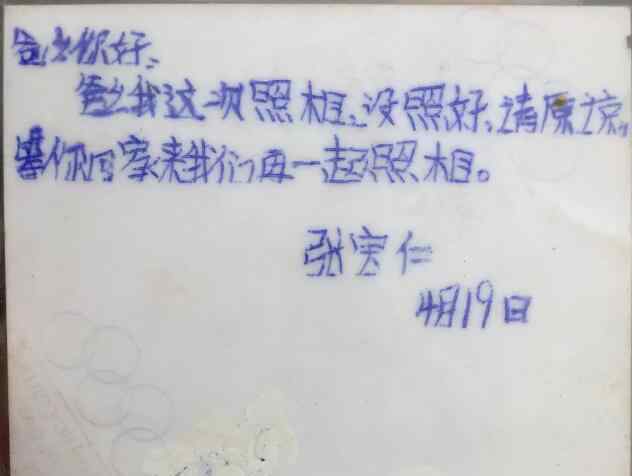 你好、
我这一次照相、没照好、请原凉。
等你回家来我们再一起照相。
张宝仁
4月19日